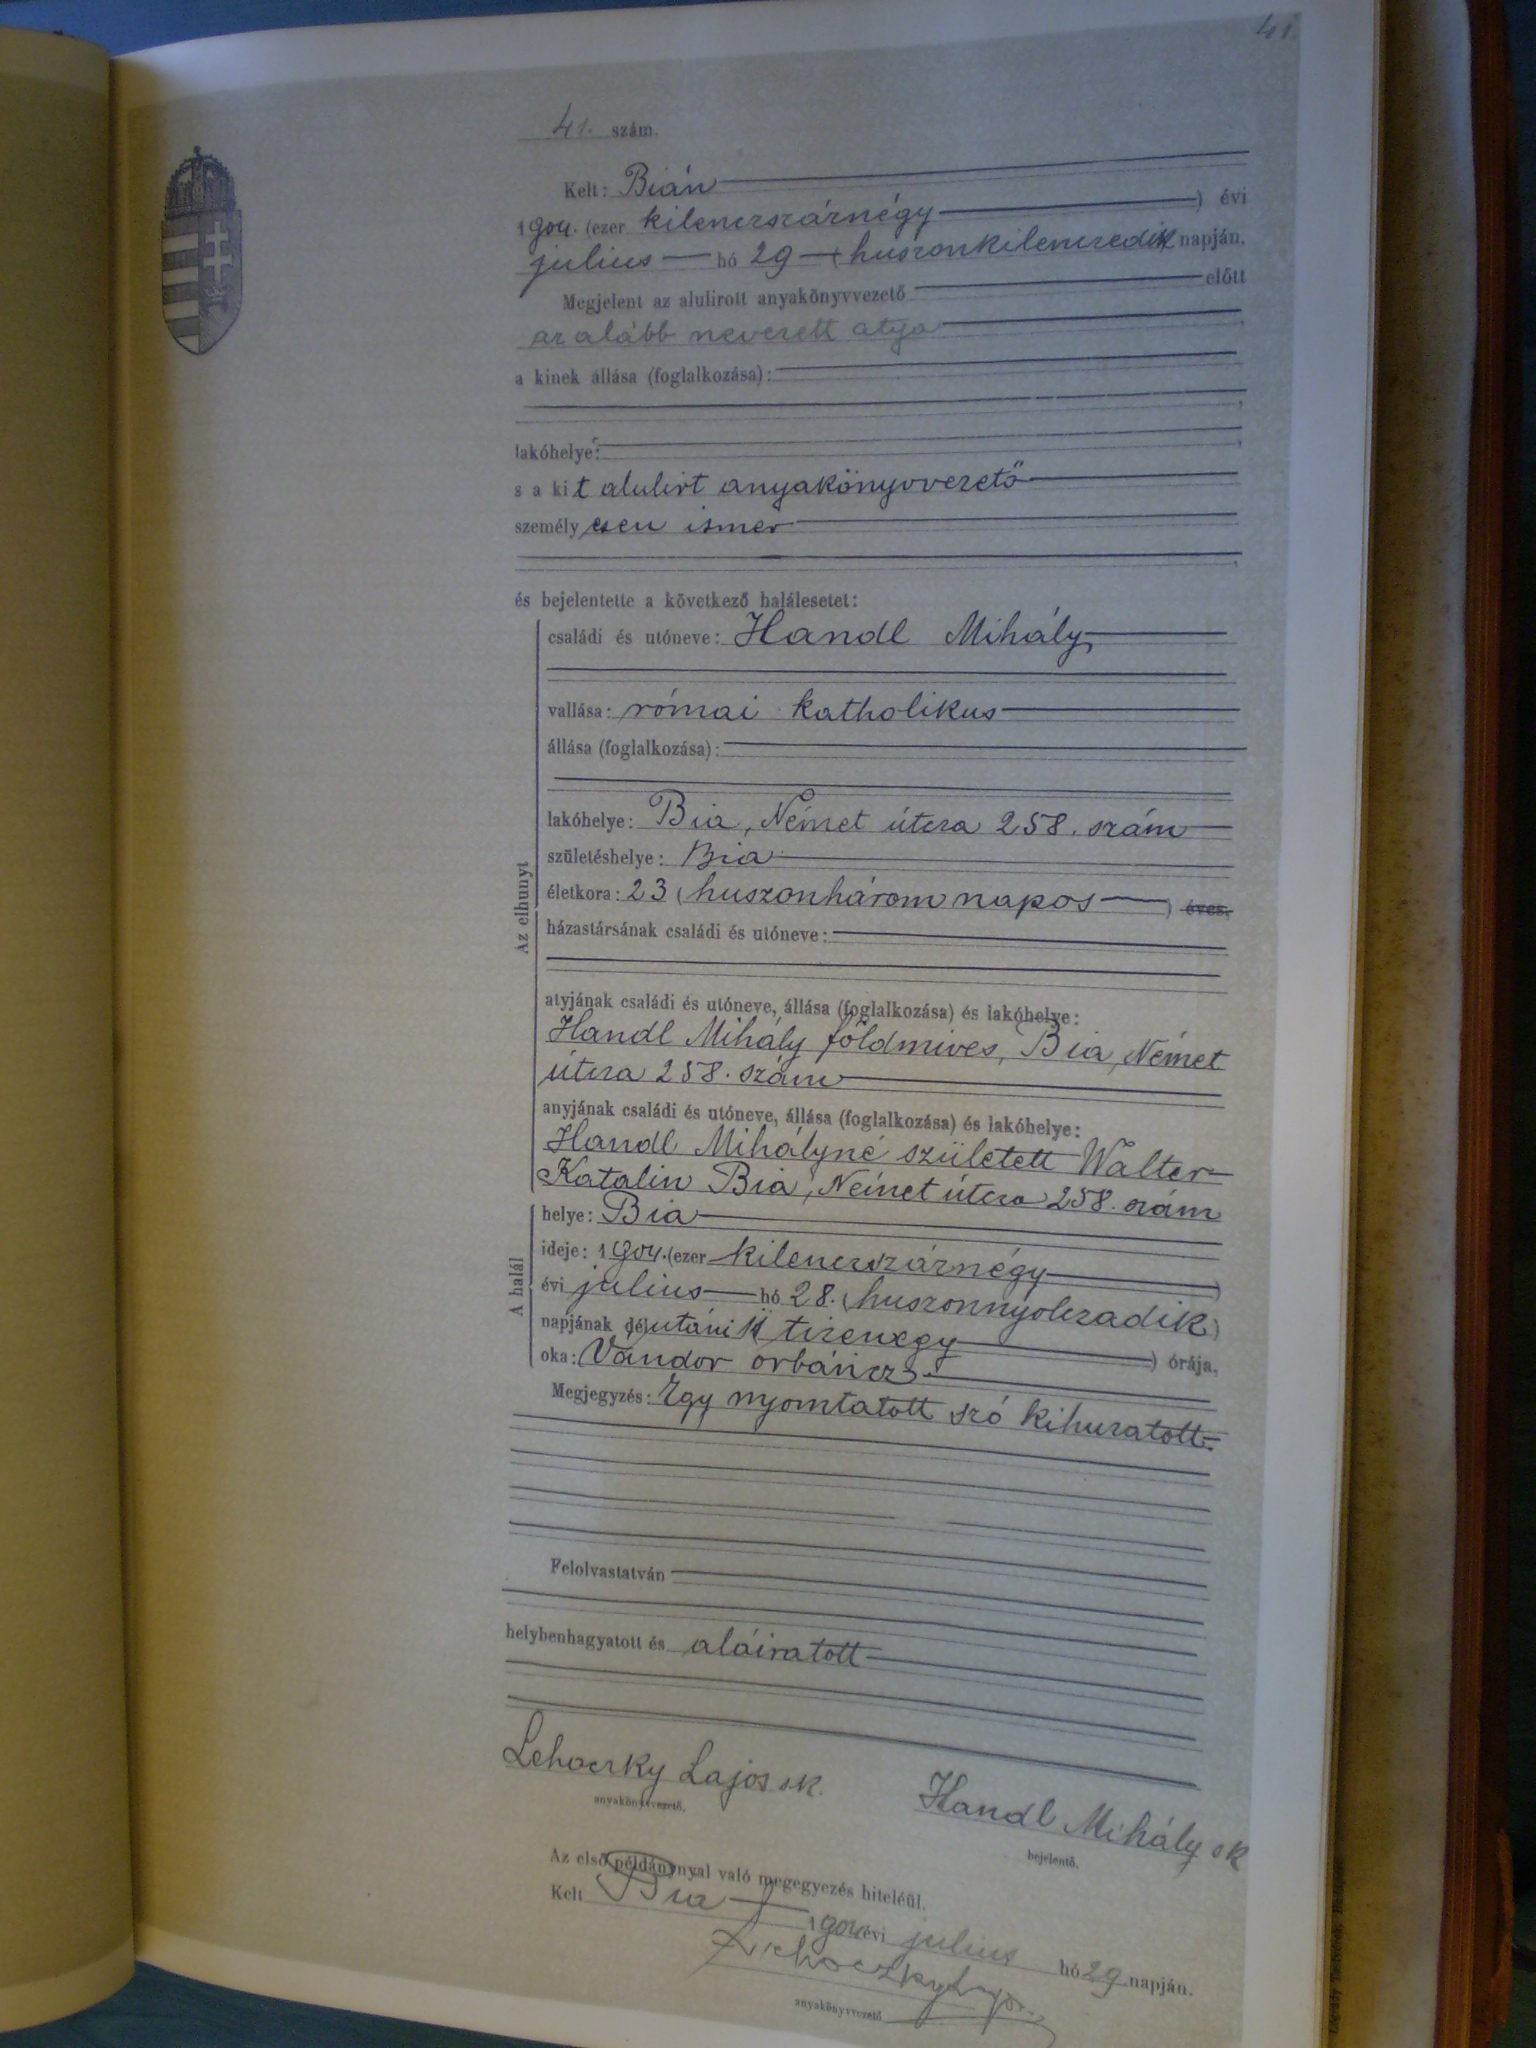 41.
41. szám.
Kelt: Bián
1904. (ezer kilenczszáznégy ) évi
julius hó 29 (huszonkilenczedik napján.
Megjelent az alulirott anyakönyvvezető előtt
az alább nevezett atya
a kinek állása (foglalkozása):
lakóhelye:
s a kit alulirt anyakönyvvezető
személyesen ismer
és bejelentette a következő halálesetet:
Az elhunyt
családi és utóneve: Handl Mihály
vallása: római katholikus
állása (foglalkozása):
lakóhelye: Bia, Német útcza 258. szám
születéshelye: Bia
életkora: 23 (huszonhárom napos ) éves.
házastársának családi és utóneve:
atyjának családi és utóneve, állása (foglalkozása) és lakóhelye:
Handl Mihály földmives, Bia, Német
útcza 258. szám
anyjának családi és utóneve, állása (foglalkozása) és lakóhelye:
Handl Mihályné született Walter
Katalin Bia, Német útcza 258. szám
A halál
helye: Bia
ideje: 1904. (ezer kilenczszáznégy )
évi julius hó 28. (huszonnyolczadik)
napjának délutáni 11 tizenegy ) órája,
oka: Vándor orbáncz.
Megjegyzés: Egy nyomtatott szó kihuzatott.
Felolvastatván
helybenhagyatott és aláiratott
Lehoczky Lajos sk.
anyakönyvvezető.
Handl Mihály sk
bejelentő.
Az első példánynyal való megegyezés hiteléül.
Kelt Bia 1904 évi julius hó 29 napján.
Lehoczky Lajos
anyakönyvvezető